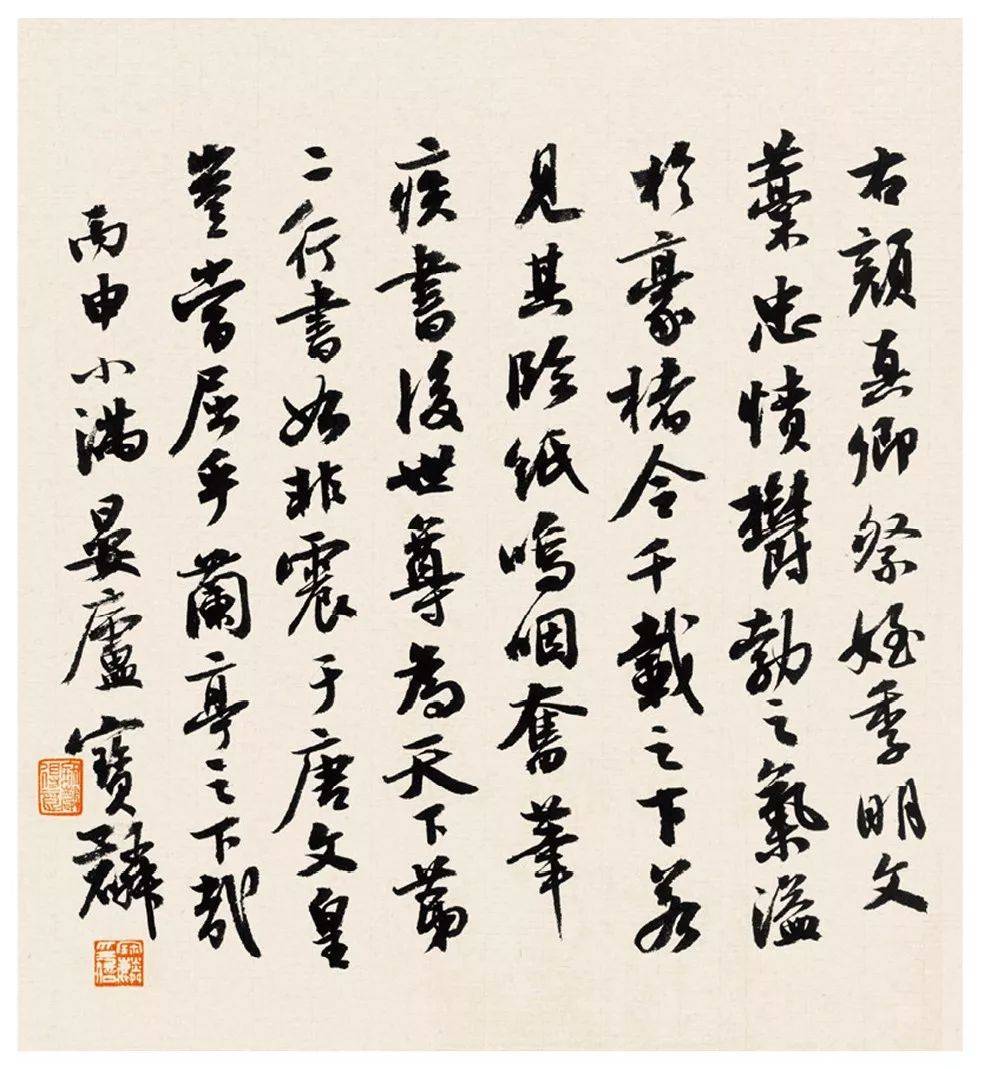 右顏真卿祭姪季明文
藁忠憤鬱勃之氣溢
於豪楮令千載之下若
見其臨紙嗚咽奮筆
疾書後世尊為天下第
二行書如非震于唐文皇
豈當屈乎蘭亭之下哉
丙申小滿晏廬寶麟